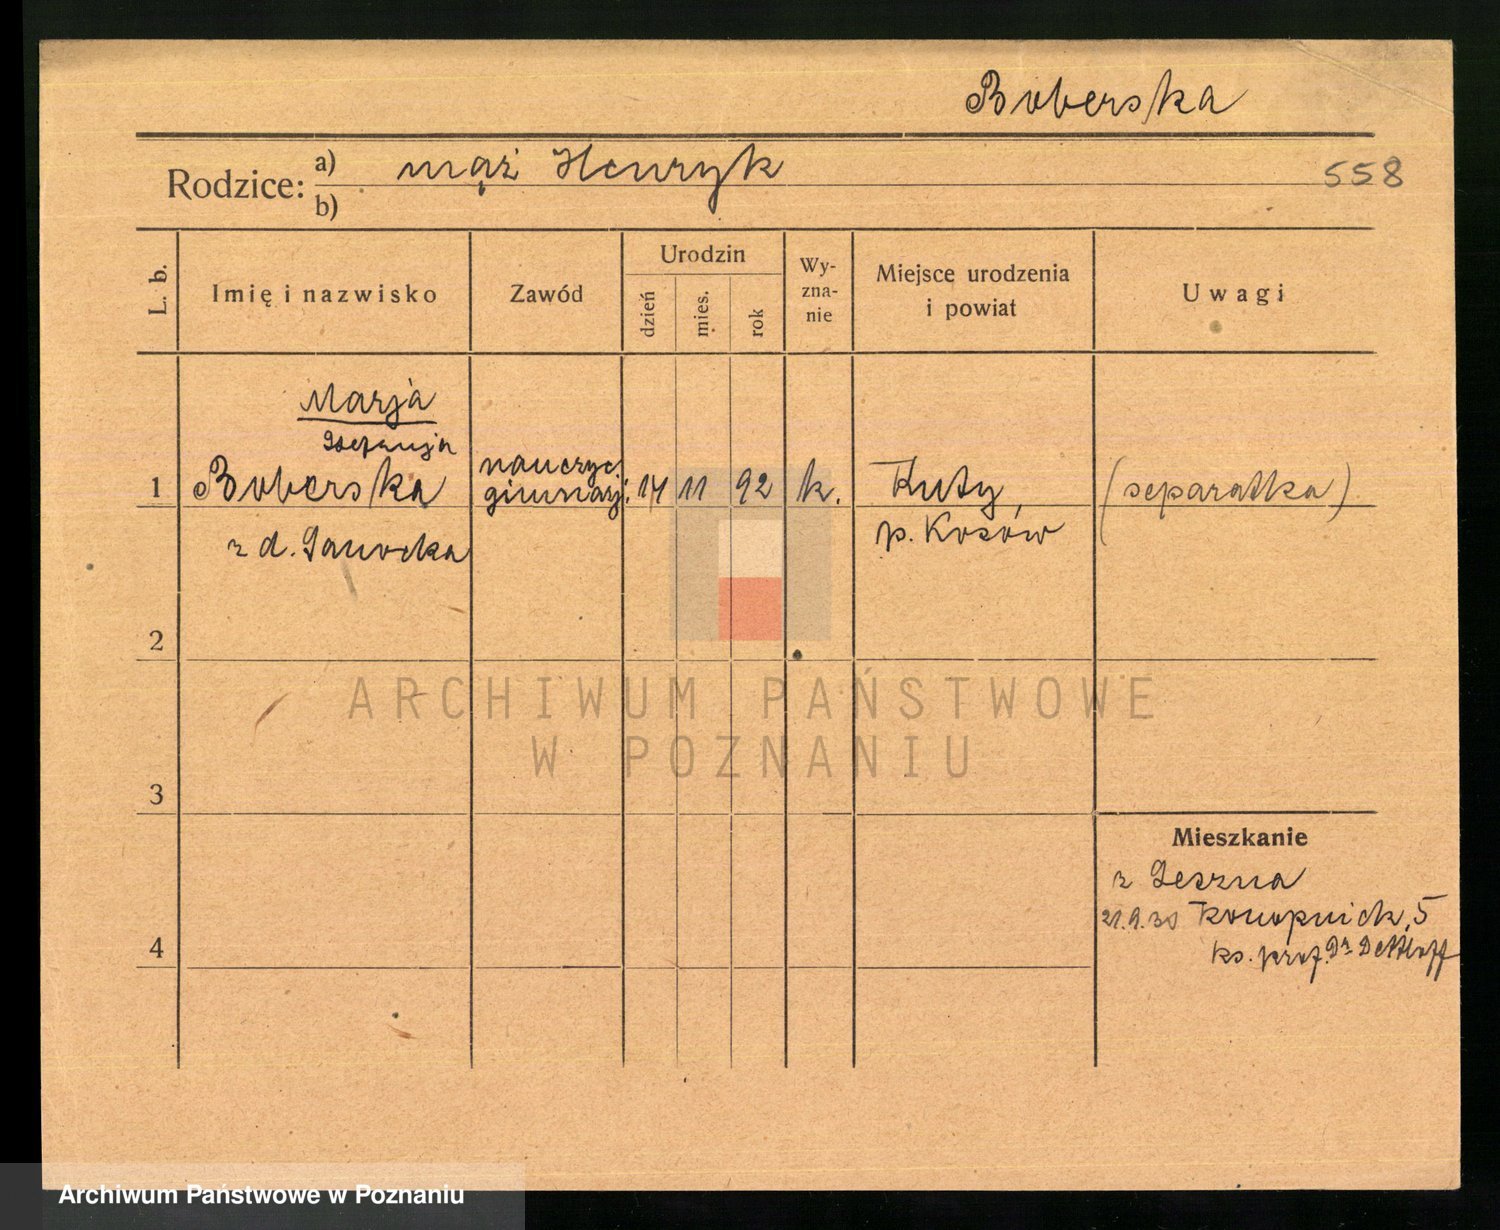 Boberska
Rodzice: a) mąż Henryk
b)
558
L. b.
Imię i nazwisko
Zawód
Urodzin
dzień
mies.
rok
Wy-
zna-
nie
Miejsce urodzenia
i powiat
Uwagi
Marja
Stefanja
1 Boberska nauczyc. 14 11 92 k. Kuty (separatka)
gimnazj.
z d. Janocka p. Kosów
2
3
4
Mieszkanie
z Leszna
21.9.30 Konopnick. 5
ks. prof. Dr Dettloff
ARCHIWUM PAŃSTWOWE
W POZNANIU
Archiwum Państwowe w Poznaniu